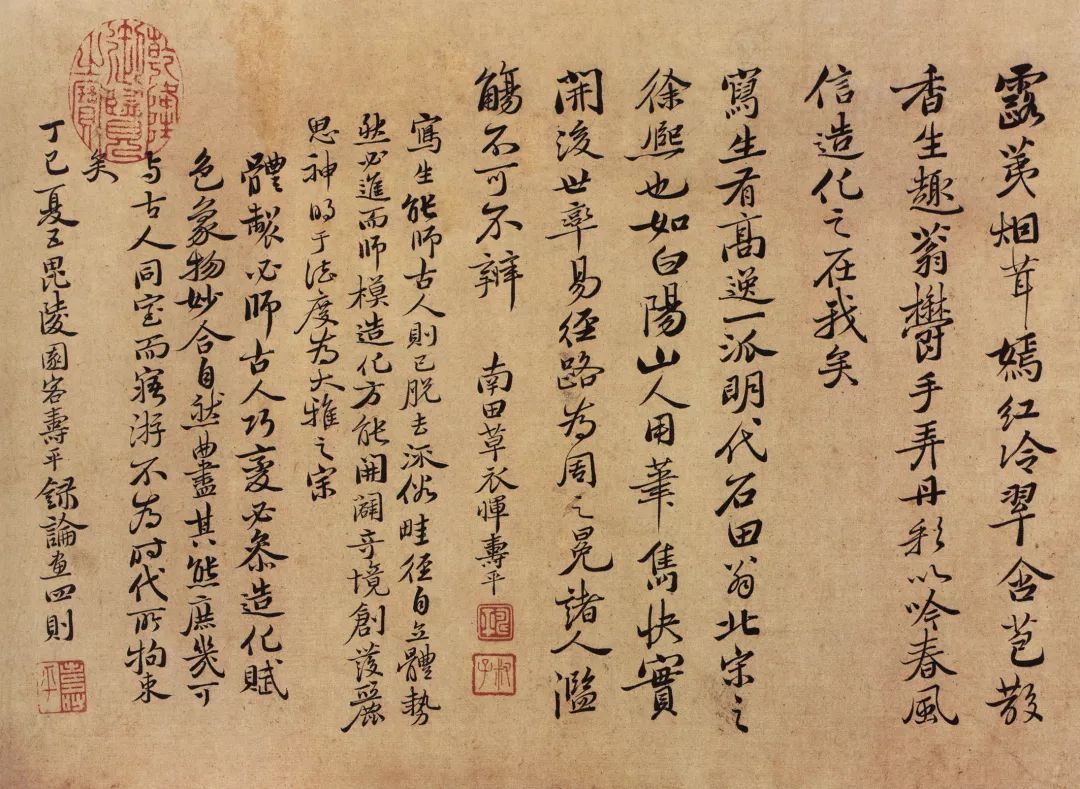 露荑烟茸嫣红冷翠含苞散
香生趣蓊欝手弄丹彩以吟春風
信造化之在我矣
寫生有髙逸一派明代石田翁北宋之
徐熈也如白陽山人用筆雋快實
開後世率易徑路為周之冕諸人濫
觴不可不辨 南田草衣惲壽平
寫生能師古人則已脱去深俗畦徑自立體勢
然必進而師模造化方能開闢奇境創發麗
思神明于法度為大雅之宗
體製必師古人巧變必叅造化賦
色象物妙合自然曲盡其態庶幾可
与古人同室而寤游不為时代所拘束
矣
丁巳夏五毘陵園客壽平錄論畫四則
乾隆御覽之寶
壽平